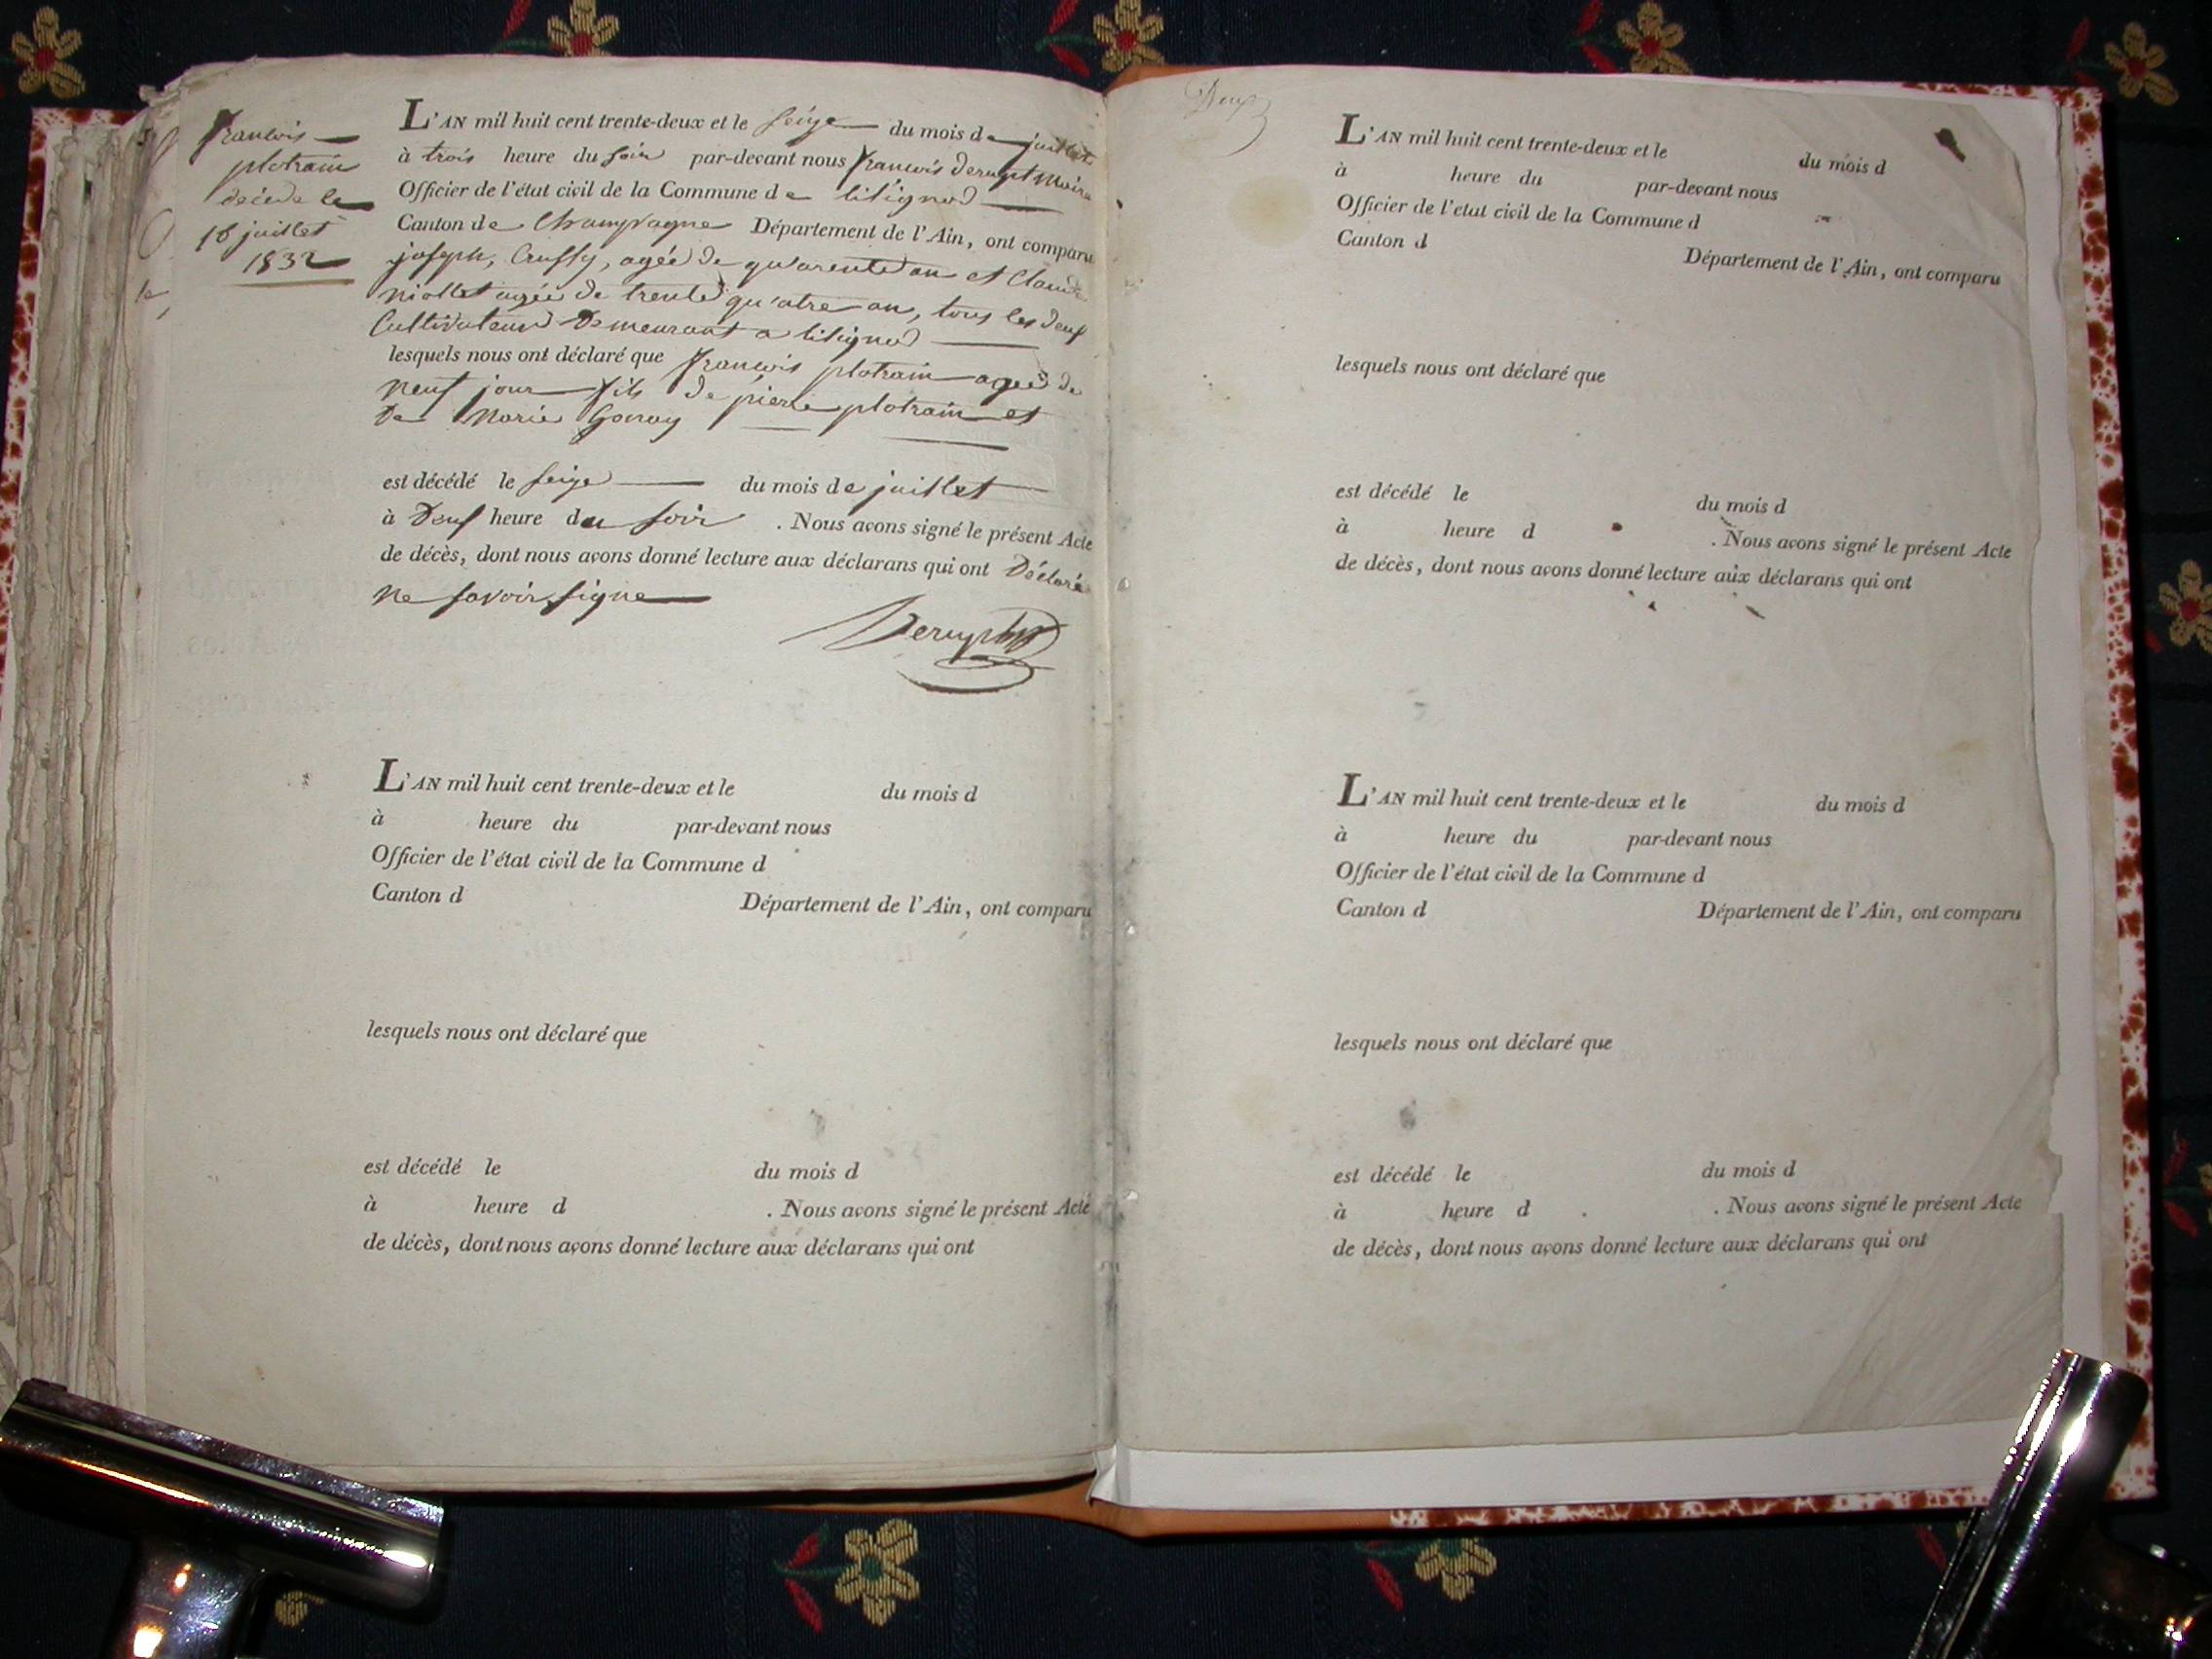 francois
plotrain
décéde le
16 juillet
1832
L'AN mil huit cent trente-deux et le seize du mois de juillet
à trois heure du soir par-devant nous francois derupt Maire
Officier de l'état civil de la Commune de litignod
Canton de Champagne Département de l'Ain, ont comparu
joseph, Crussy, agée de quarente an et Claude
niollet agée de trente quatre an, tous les deux
Cultivateurs Demeurant a litignod
lesquels nous ont déclaré que francois plotrain ageé de
neuf jour fils de pierre plotrain et
De Marie Gonoy
est décédé le seize du mois de juillet
à Deux heure du soir . Nous avons signé le présent Acte
de décès, dont nous avons donné lecture aux déclarans qui ont Déclaré
ne savoir signe
L'AN mil huit cent trente-deux et le du mois d
à heure du par-devant nous
Officier de l'état civil de la Commune d
Canton d Département de l'Ain, ont comparu
lesquels nous ont déclaré que
est décédé le du mois d
à heure d . Nous avons signé le présent Acte
de décès, dont nous avons donné lecture aux déclarans qui ont
L'AN mil huit cent trente-deux et le du mois d
à heure du par-devant nous
Officier de l'etat civil de la Commune d
Canton d Département de l'Ain, ont comparu
lesquels nous ont déclaré que
est décédé le du mois d
à heure d . Nous avons signé le présent Acte
de décès, dont nous avons donné lecture aux déclarans qui ont
L'AN mil huit cent trente-deux et le du mois d
à heure du par-devant nous
Officier de l'état civil de la Commune d
Canton d Département de l'Ain, ont comparu
lesquels nous ont déclaré que
est décédé le du mois d
à heure d . Nous avons signé le présent Acte
de décès, dont nous avons donné lecture aux déclarans qui ont